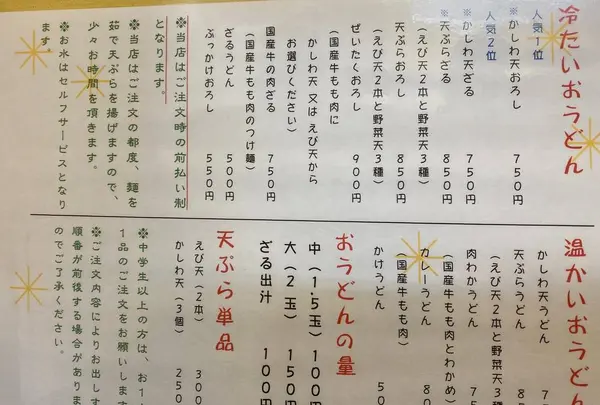 冷たいおうどん
人気1位
※かしわ天おろし 750円
人気2位
※かしわ天ざる 750円
※天ぷらざる 850円
(えび天2本と野菜天3種)
天ぷらおろし 850円
(えび天2本と野菜天3種)
ぜいたくおろし 900円
(国産牛もも肉に
かしわ天 又は えび天から
お選びください)
国産牛の肉ざる 750円
(国産牛もも肉のつけ麺)
ざるうどん 500円
ぶっかけおろし 550円
※当店はご注文時の前払い制
となります。
※当店はご注文の都度、麺を
茹で天ぷらを揚げますので、
少々お時間を頂きます。
※お水はセルフサービスとなり
ます。
温かいおうどん
かしわ天うどん
天ぷらうどん
(えび天2本と野菜天3種
肉わかうどん
(国産牛もも肉とわかめ)
カレーうどん
(国産牛もも肉)
かけうどん
おうどんの量
中(1.5玉) 100円
大(2玉) 150円
ざる出汁 100円
天ぷら単品
えび天(2本) 300
かしわ天(3個) 250
※中学生以上の方は、お1
1品のご注文をお願いします
※ご注文内容によりお出しす
順番が前後する場合がありま
のでご了承ください。